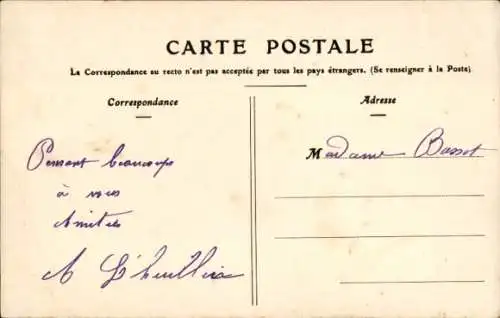 CARTE POSTALE
La Correspondance au recto n'est pas acceptée par tous les pays étrangers. (Se renseigner à la Poste)
Correspondance
Adresse
Pensant beaucoup
à vous
Amitiés
A L'huillier
Madame Bassot